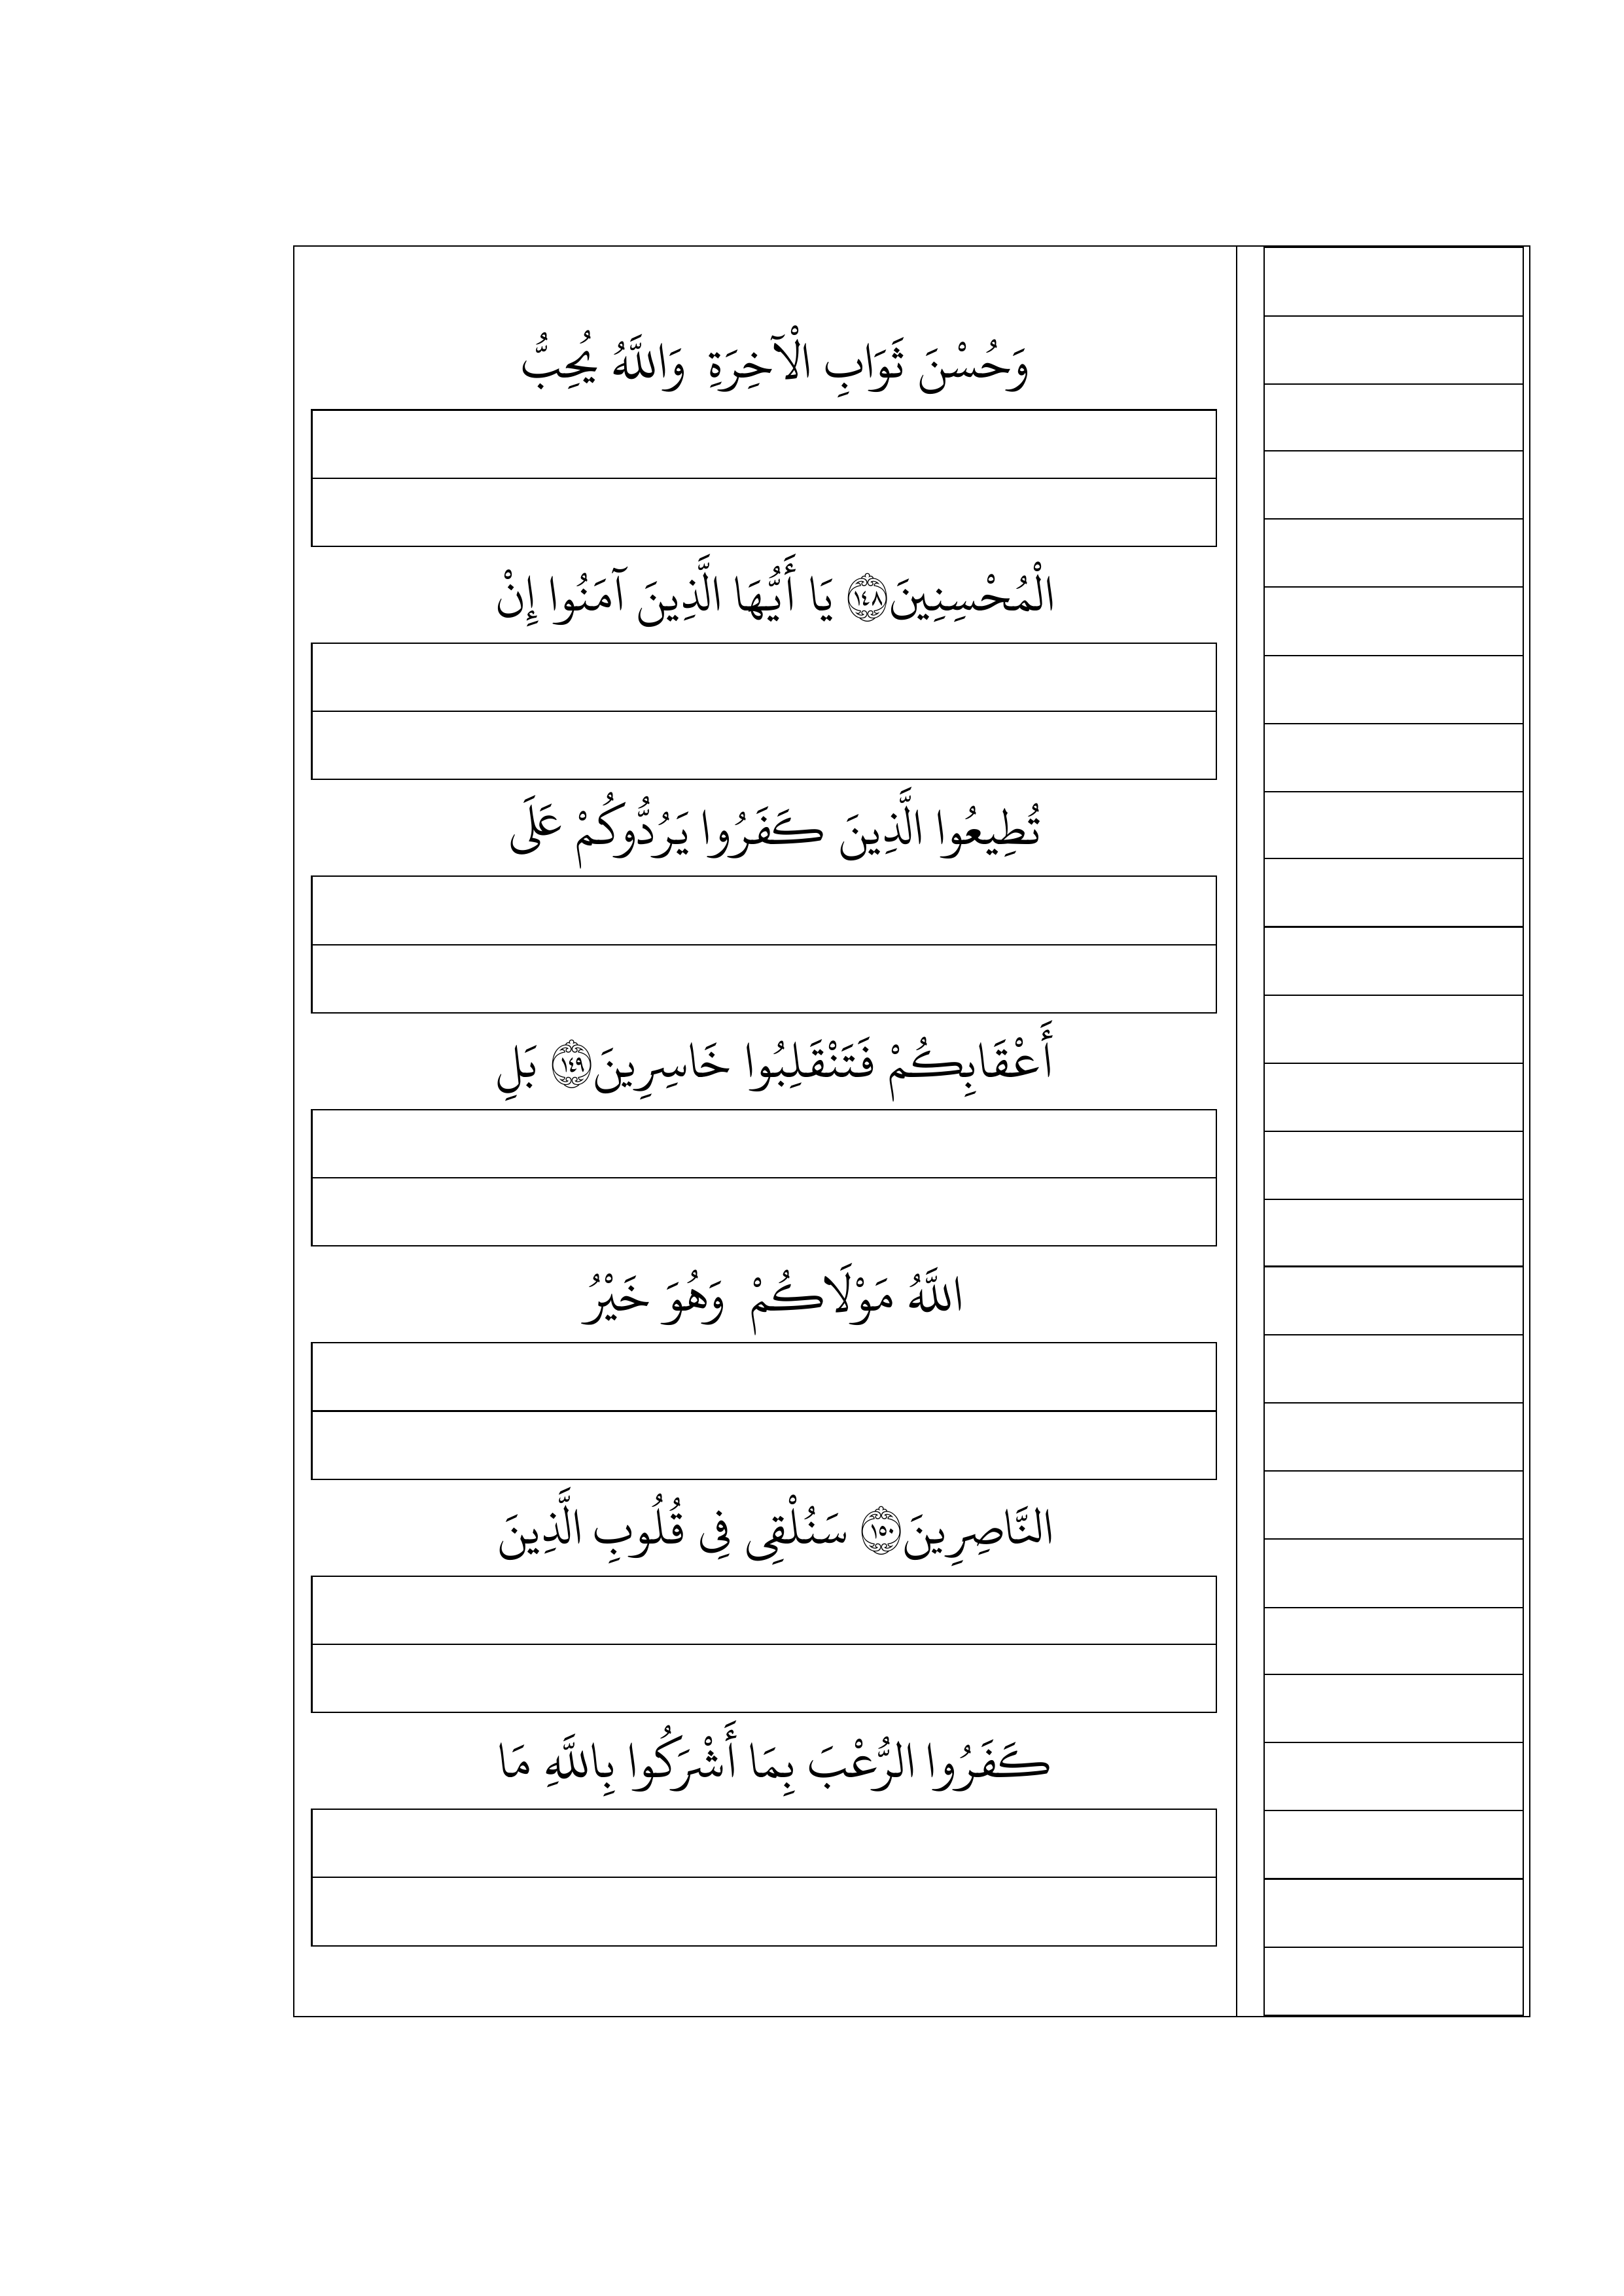 وَحُسْنَ ثَوَابِ الْآخِرَةِ وَاللَّهُ يُحِبُّ
الْمُحْسِنِينَ ﴿١٤٨﴾ يَا أَيُّهَا الَّذِينَ آمَنُوا إِنْ
تُطِيعُوا الَّذِينَ كَفَرُوا يَرُدُّوكُمْ عَلَى
أَعْقَابِكُمْ فَتَنْقَلِبُوا خَاسِرِينَ ﴿١٤٩﴾ بَلِ
اللَّهُ مَوْلَاكُمْ وَهُوَ خَيْرُ
النَّاصِرِينَ ﴿١٥٠﴾ سَنُلْقِي فِي قُلُوبِ الَّذِينَ
كَفَرُوا الرُّعْبَ بِمَا أَشْرَكُوا بِاللَّهِ مَا